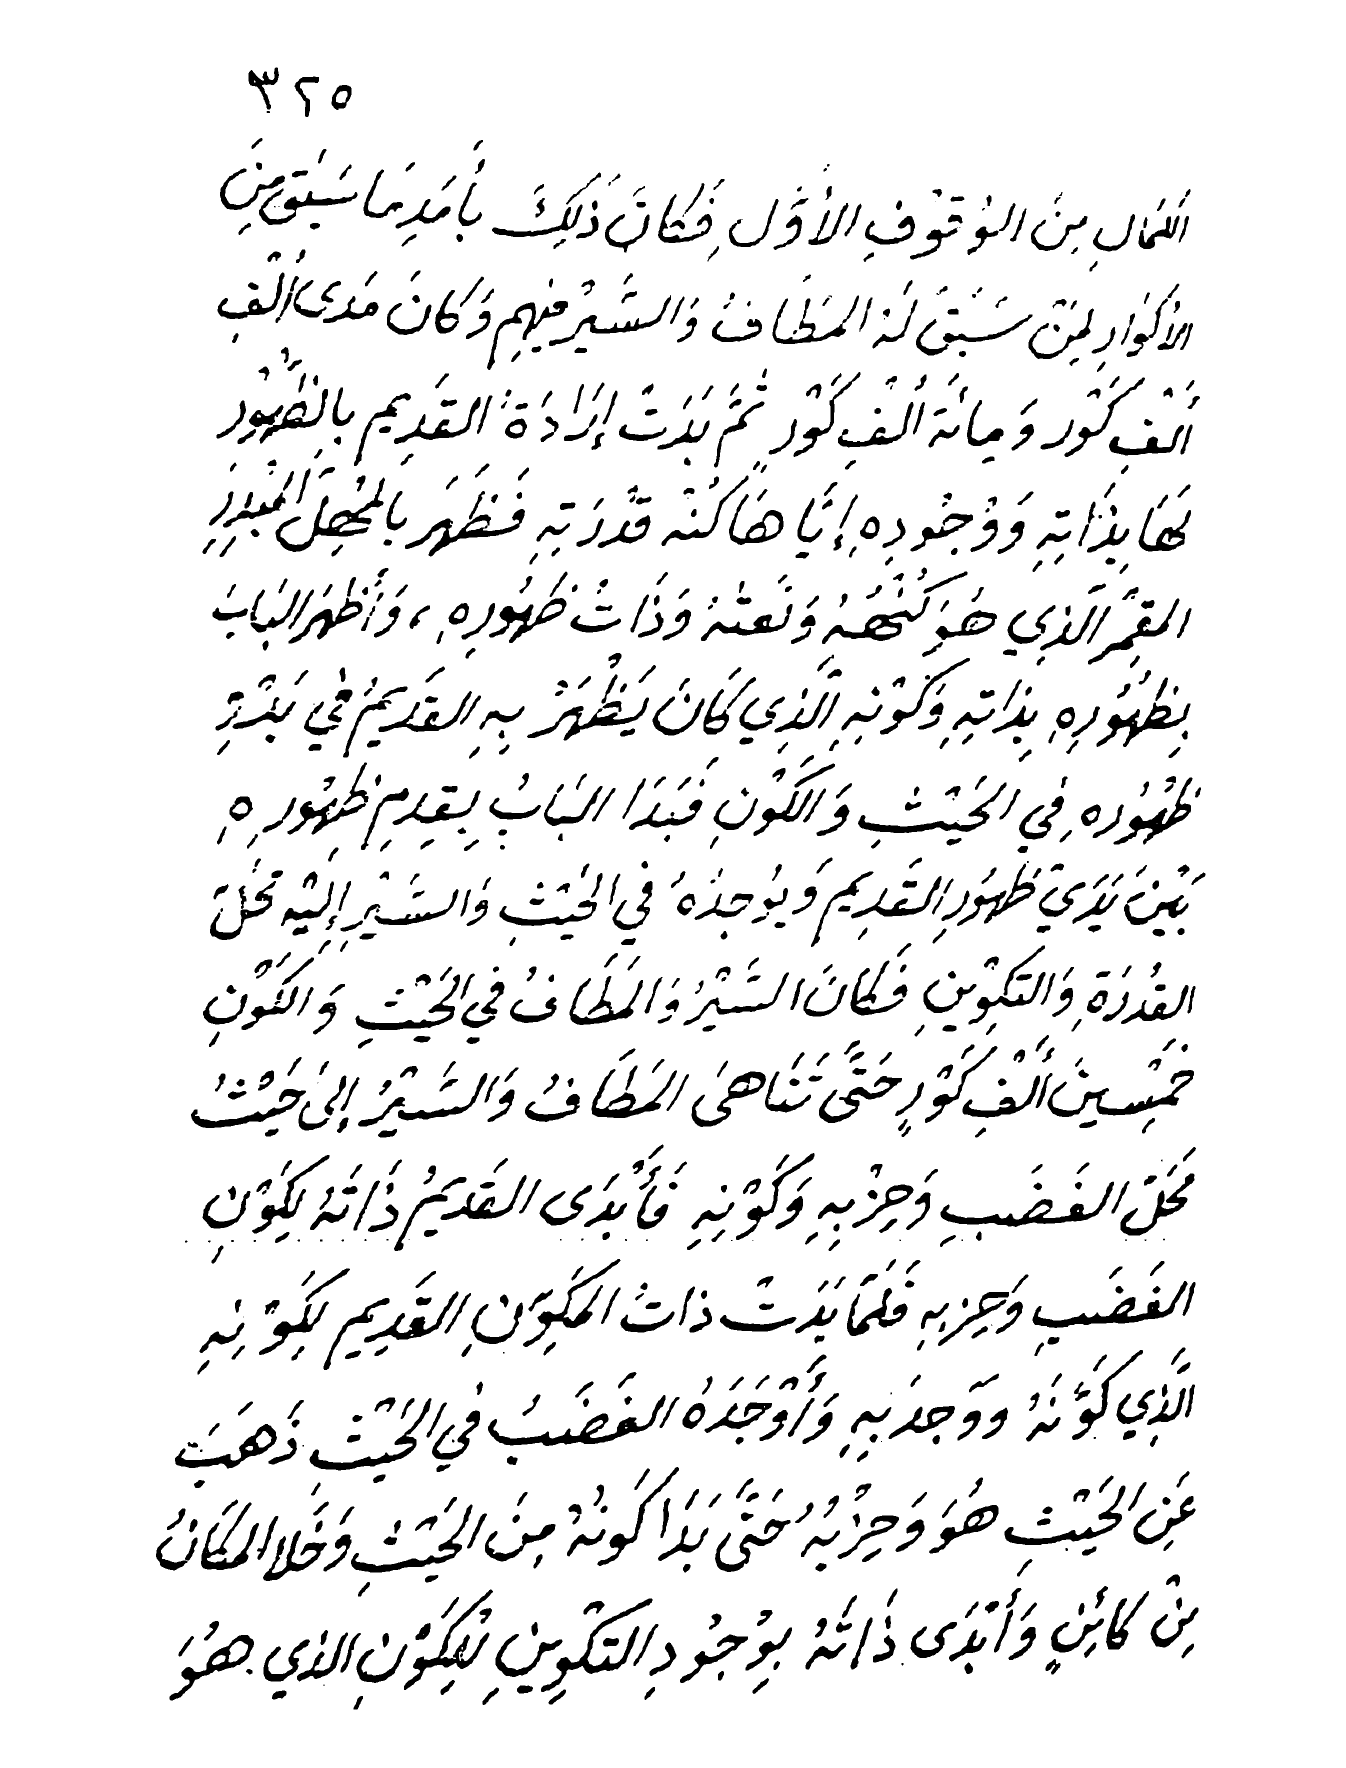 ٣٢٥
الكَمَالِ مِنَ الوُقُوْفِ الأَوَّلِ فَكَانَ ذَلِكَ بِأَمَدِ مَا سَبَقَ مِنَ
الأَكْوَارِ لِمَنْ سَبَقَ لَهُ المَطَافُ وَالسَّيْرُ فِيهِم وَكَانَ مَدَى أَلْفِ
أَلْفِ كَوْر وَمِائَة أَلْفِ كَوْرٍ ثُمَّ بَدَتْ إِرَادَةُ القَدِيم بِالظُّهُوْرِ
لَهَا بِذَاتِهِ وَوُجُودِهِ إِيَّاهَا كُنْه قُدْرَتِهِ فَظَهَرَ بِالمُهِلِّ المُبْدِرِ
المُقْمِر الَّذِي هُوَ كُنْهُهُ وَنَعتُهُ وَذَاتُ ظُهُورِهِ، وَأَظْهَرَ البَابَ
بِظُهُوْرِهِ بِذَاتِهِ وَكَوْنِهِ الَّذِي كَانَ يَظْهَرُ بِهِ القَدِيمُ فِي بَدْرِ
ظُهُوْرِه فِي الحَيْثِ وَالكَوْنِ فَبَدَا البَابُ بِقِدمِ ظُهُورِهِ
بَيْنَ يَدَيْ ظُهُورِ القَدِيم وَيُوجِدُهُ فِي الحَيْثِ وَالسَّيْرِ إِلَيْهِ مَحَلّ
القُدْرَةِ وَالتَكوِيْنِ فَكَانَ السَّيْرُ وَالمَطَافُ فِي الحَيْثِ وَالكَوْنِ
خَمْسِينَ أَلْفِ كَوْرٍ حَتَّى تَنَاهَى المَطَافُ وَالسَّيْرُ إِلَى حَيْثُ
مَحَلّ الغَضَبِ وَحِزْبِهِ وَكَوْنِهِ فَأَبْدَى القَدِيمُ ذَاتَهُ لِكَوْنِ
الغَضَبِ وَحِزبِهِ فَلَمَّا بَدَتْ ذاتُ المُكَوِّنِ القَدِيمِ لِكَوْنِهِ
الَّذِي كَوَّنَهُ وَوَجدَ بِهِ وَأَوْجَدَهُ الغَضَبُ فِي الحَيْثِ ذَهَبَ
عَنِ الحَيْثِ هُوَ وَحِزْبُهُ حَتَّى بَدَا كَونُهُ مِنَ الحَيْثِ وَخَلا المَكَانُ
مِنْ كائِنٍ وَأَبْدَى ذَاتَهُ بِوُجُودِ التَكْوِينِ لِلْكَوْنِ الذي هُوَ